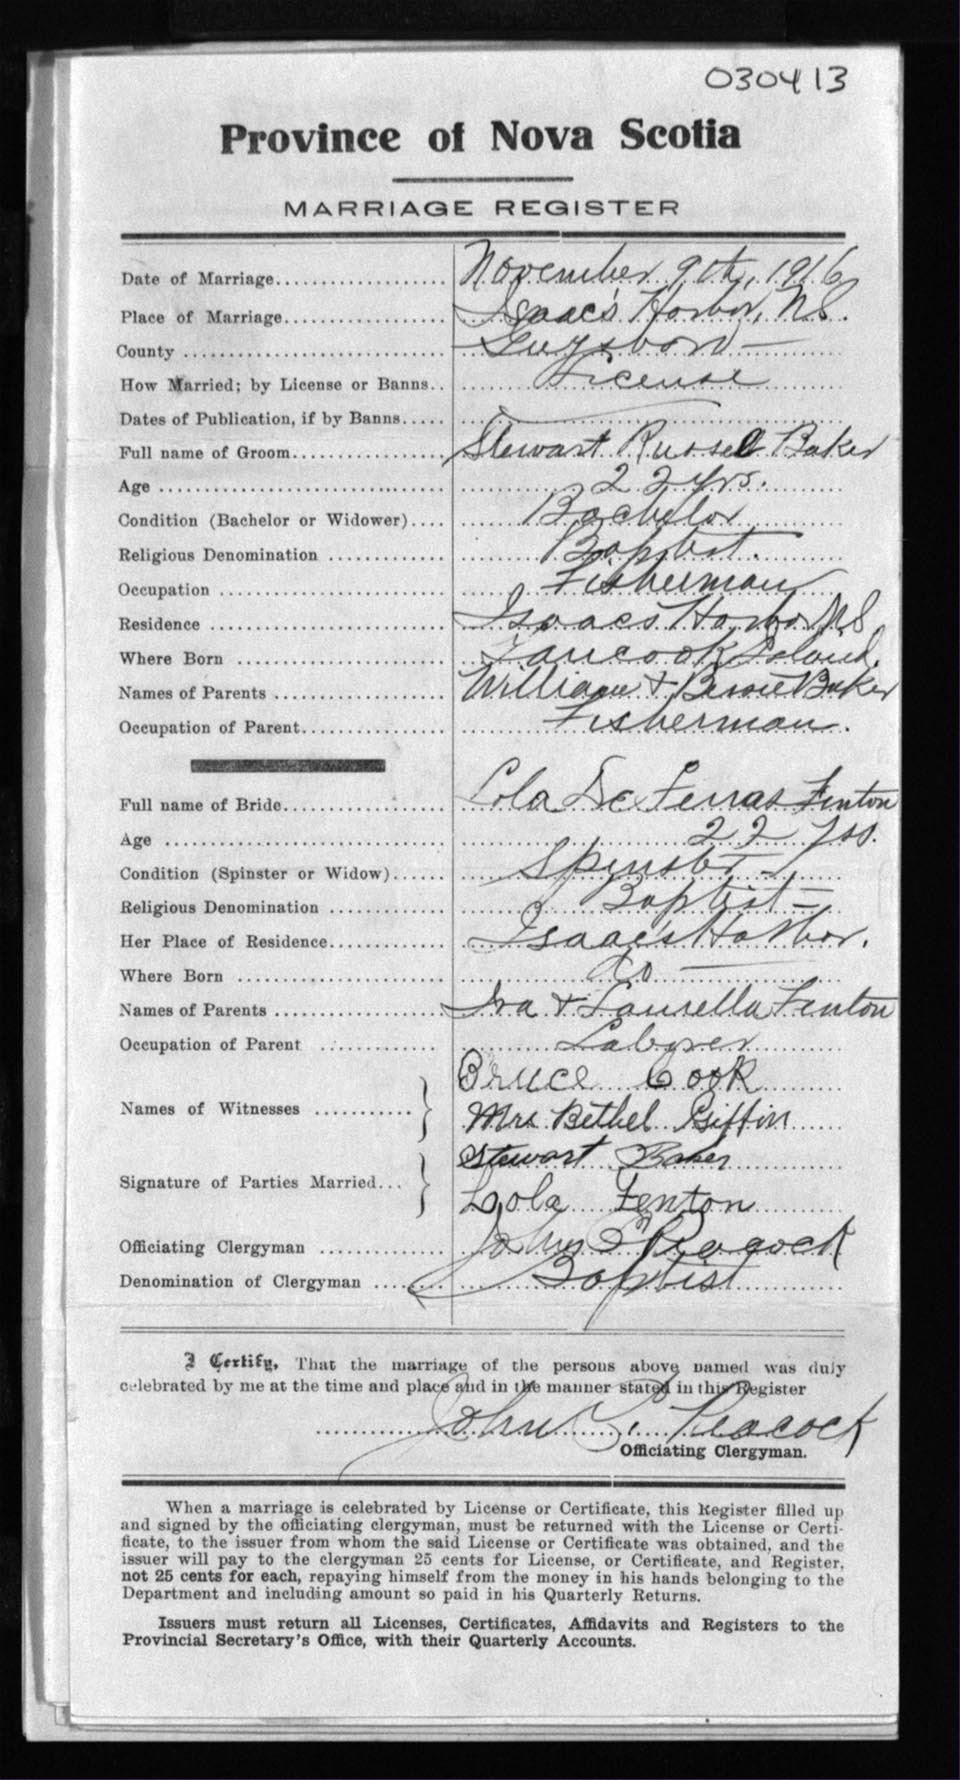 030413
Province of Nova Scotia
MARRIAGE REGISTER
Date of Marriage.................... November 9th, 1916
Place of Marriage................... Isaac's Harbor, N.S.
County ............................... Guysboro —
How Married; by License or Banns.. License
Dates of Publication, if by Banns.....
Full name of Groom.................. Stewart Russel Baker
Age ................................. 22 yrs.
Condition (Bachelor or Widower).... Bachelor
Religious Denomination .............. Baptist.
Occupation ........................... Fisherman
Residence ............................ Isaacs Harbor N.S.
Where Born ......................... Tancook Island.
Names of Parents .................... William + Baker
Occupation of Parent................. Fisherman.
Full name of Bride................... Lola De Ferras Fenton
Age ................................. 22 yrs.
Condition (Spinster or Widow)...... Spinster
Religious Denomination .............. Baptist —
Her Place of Residence.............. Isaac's Harbor.
Where Born ......................... do —
Names of Parents .................... Ira + Laurella Fenton
Occupation of Parent .............. Laborer
Names of Witnesses ........... } Bruce Cook
Mrs. Bethel Giffin
Signature of Parties Married... } Stewart Baker
Lola Fenton
Officiating Clergyman ............... John Peacock
Denomination of Clergyman ........ Baptist
I Certify, That the marriage of the persons above named was duly
celebrated by me at the time and place and in the manner stated in this Register
John Peacock
Officiating Clergyman.
When a marriage is celebrated by License or Certificate, this Register filled up
and signed by the officiating clergyman, must be returned with the License or Certi-
ficate, to the issuer from whom the said License or Certificate was obtained, and the
issuer will pay to the clergyman 25 cents for License, or Certificate, and Register,
not 25 cents for each, repaying himself from the money in his hands belonging to the
Department and including amount so paid in his Quarterly Returns.
Issuers must return all Licenses, Certificates, Affidavits and Registers to the
Provincial Secretary's Office, with their Quarterly Accounts.